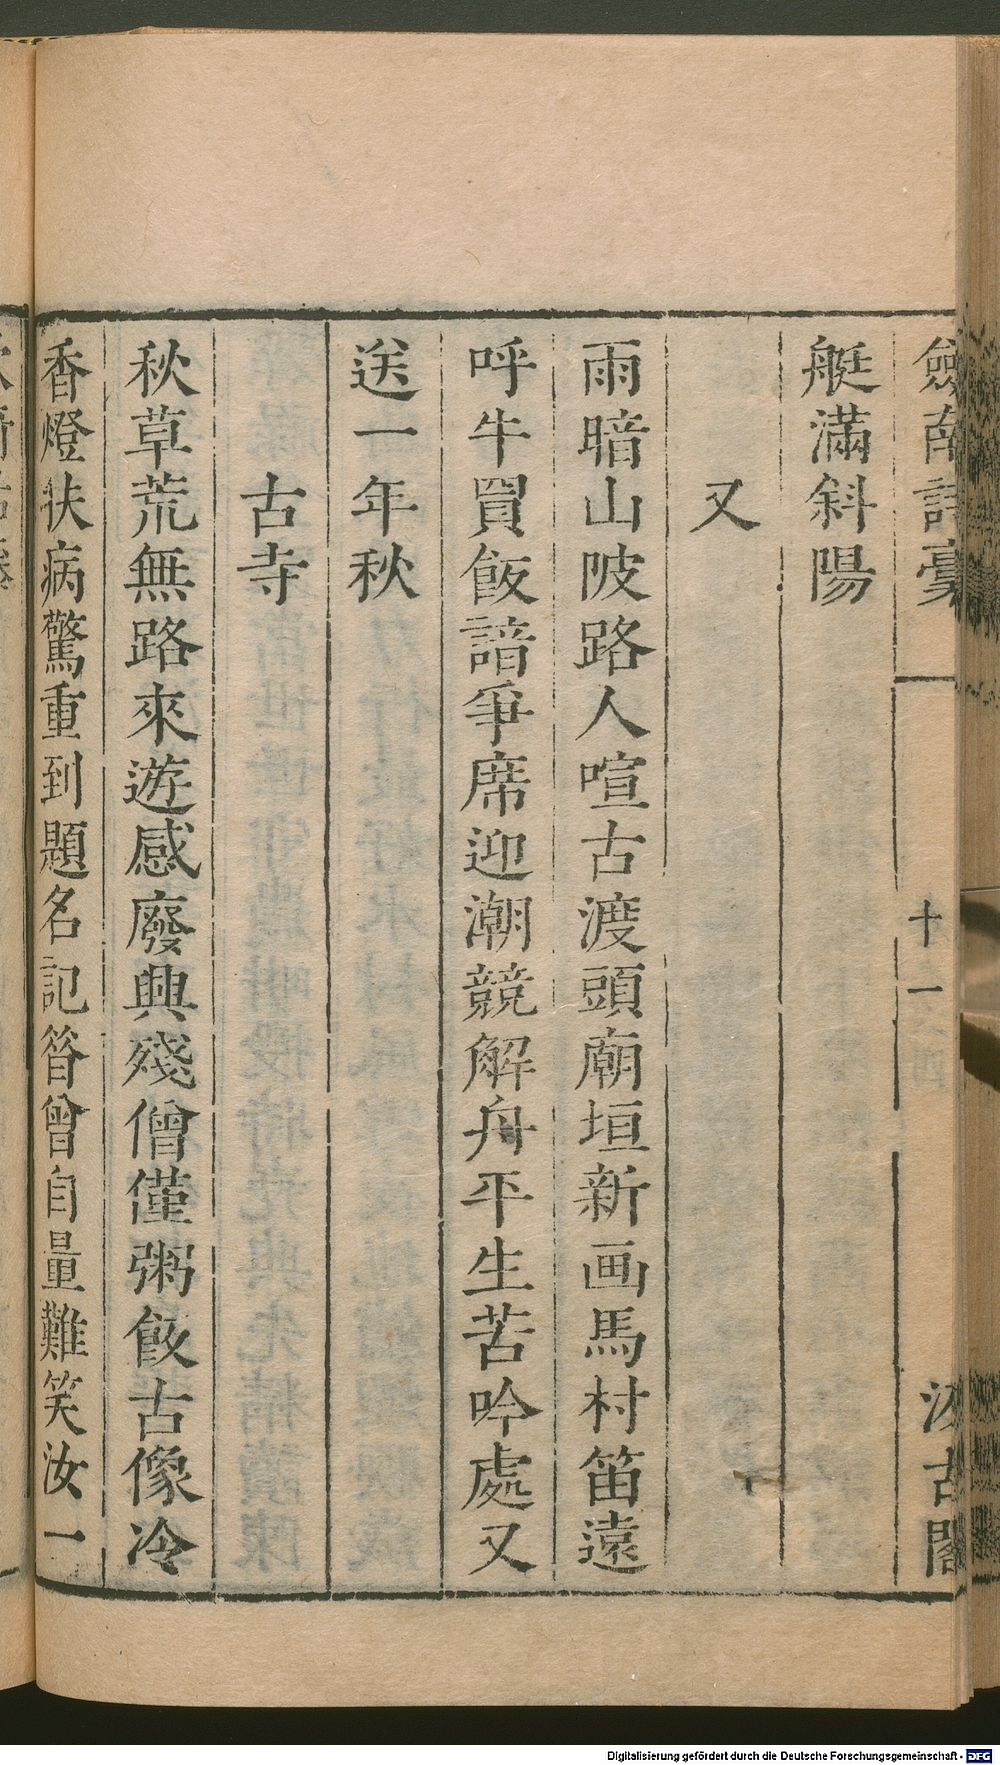 劍南詩稾 十一 汲古閣
艇滿斜陽
又
雨暗山陂路人喧古渡頭廟垣新画馬村笛遠
呼牛買飯諳爭席迎潮競解舟平生苦吟處又
送一年秋
古寺
秋草荒無路來遊感廢興殘僧僅粥飯古像冷
香燈扶病驚重到題名記昝曾自量難笑汝一
Digitalisierung gefördert durch die Deutsche Forschungsgemeinschaft - DFG